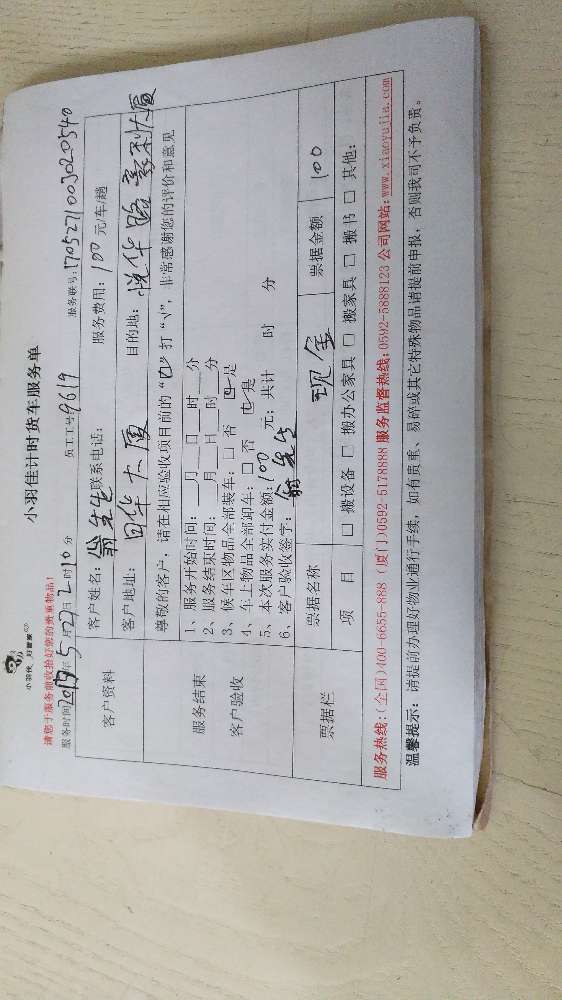 小羽佳计时货车服务单
小羽佳，好管家
请您于服务前收拾好您的贵重物品！
服务时间2017年5月27日2时10分 员工工号：9619 服务联号：170527100302 0540
客户资料
客户姓名：翁先生 联系电话： 服务费用：100元/车/趟
客户地址：日华大厦 目的地：悦华路豪利大厦
服务结束
客户验收
尊敬的客户，请在相应验收项目前的“□”打“√”，非常感谢您的评价和意见
1、服务开始时间：__月__日__时__分
2、服务结束时间：__月__日__时__分
3、候车区物品全部装车：□ 否 ☑ 是
4、车上物品全部卸车：□ 否 ☑ 是
5、本次服务实付金额：100元；共计 时 分
6、客户验收签字：翁先生
票据栏
票据名称 现金 票据金额 100
项目 □ 搬设备 □ 搬办公家具 □ 搬家具 □ 搬书 □ 其他：
服务热线：（全国）400-6655-888（厦门）0592-5178888 服务监督热线：0592-5888123 公司网站：www.xiaoyujia.com
温馨提示：请提前办理好物业通行手续，如有贵重、易碎或其它特殊物品请提前申报，否则我司不予负责。